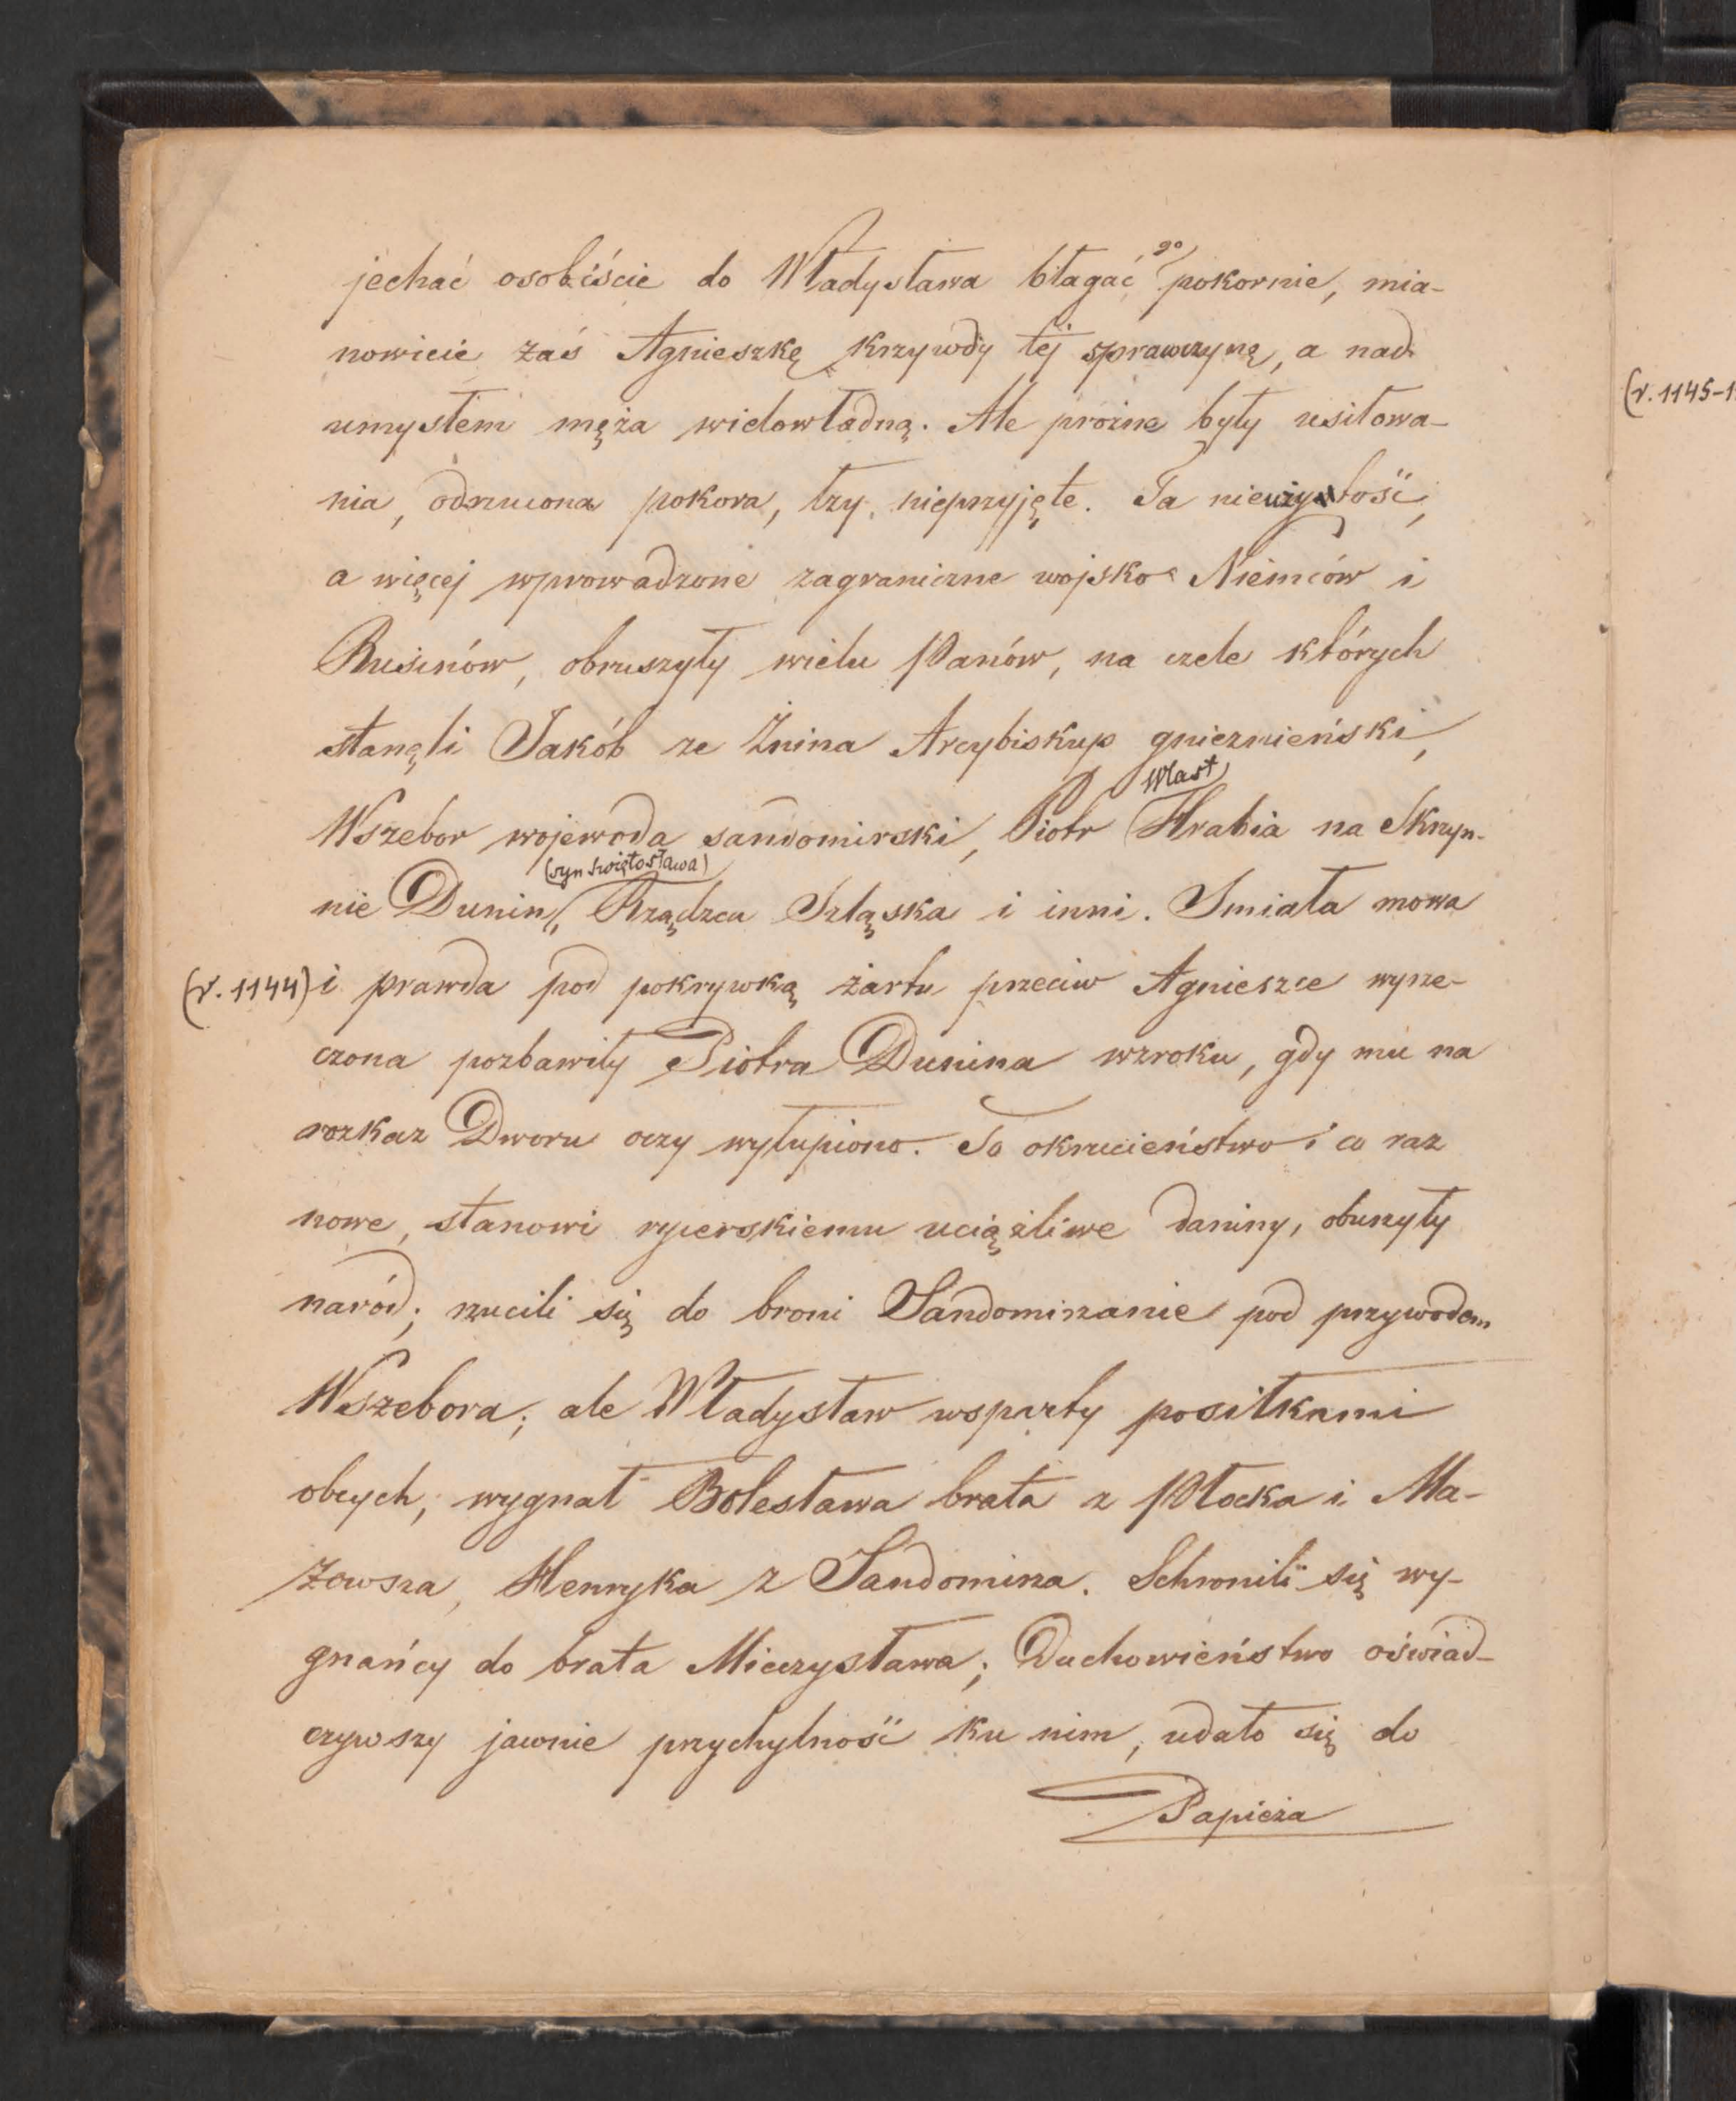 jechać osobiście do Władysława błagać go pokornie, mia-
nowicie zaś Agnieszkę krzywdy tej sprawczynę, a nad
umysłem męża wielowładną. Ale próżne były usiłowa-
nia, odrzucona pokora, łzy nieprzyjęte. Ta nieużytość,
a więcej wprowadzone zagraniczne wojsko Niemców i
Rusinów, obruszyły wielu Panów, na czele których
stanęli Jakób ze Żnina Arcybiskup gnieznieński,
Wszebor wojewoda sandomirski, Piotr Wlast Hrabia na Skrzyn-
nie Dunin, (syn Świętosława) Rządzca Szląska i inni. Smiała mowa
(r. 1144) i prawda pod pokrywką żartu przeciw Agnieszce wyrze-
czona pozbawiły Piotra Dunina wzroku, gdy mu na
rozkaz Dworu oczy wyłupiono. To okrucieństwo i co raz
nowe, stanowi rycerskiemu uciążliwe daniny, oburzyły
naród; rzucili się do broni Sandomirzanie pod przywodem
Wszebora; ale Władysław wsparty posiłkami
obcych, wygnał Bolesława brata z Płocka i Ma-
zowsza, Henryka z Sandomirza. Schronili się wy-
gnańcy do brata Mieczysława; Duchowieństwo oświad-
czywszy jawnie przychylność ku nim, udało się do
Papieża
(r. 1145-1